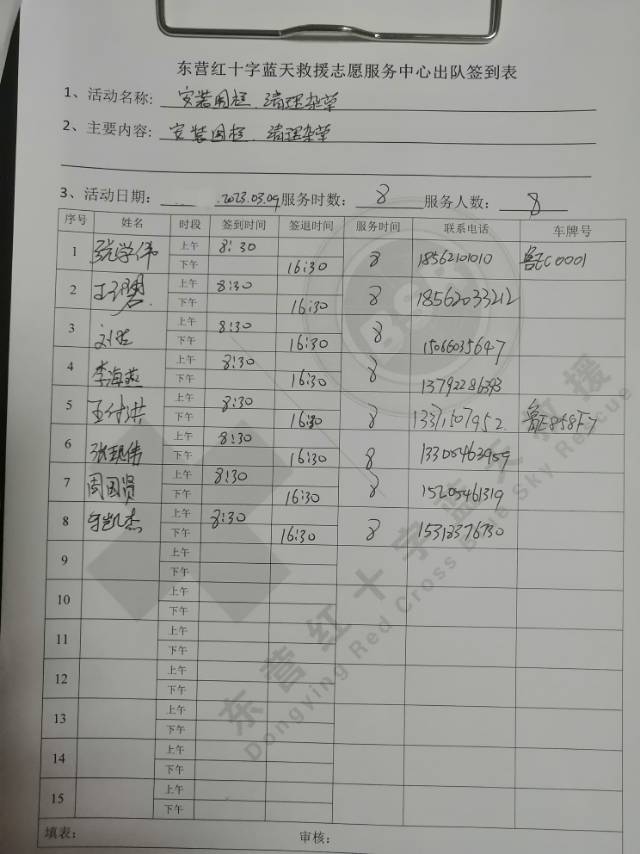 东营红十字蓝天救援志愿服务中心出队签到表
1、活动名称: 安装围栏、清理杂草
2、主要内容: 安装围栏、清理杂草
3、活动日期: 2023.03.09 服务时数: 8 服务人数: 8
序号 姓名 时段 签到时间 签退时间 服务时间 联系电话 车牌号
1 张学伟 上午 8:30
下午 16:30 8 18562101010 鲁EC0001
2 上午 8:30
下午 16:30 8 18562033212
3 上午 8:30
下午 16:30 8 15066035647
4 李海燕 上午 8:30
下午 16:30 8 13792286393
5 王付洪 上午 8:30
下午 16:30 8 13371507952 鲁E858F7
6 张现伟 上午 8:30
下午 16:30 8 13305463959
7 周国贤 上午 8:30
下午 16:30 8 15205461319
8 凯杰 上午 8:30
下午 16:30 8 15313376730
9 上午
下午
10 上午
下午
11 上午
下午
12 上午
下午
13 上午
下午
14 上午
下午
15 上午
下午
填表: 审核:
BSR
东营红十字蓝天救援
Dongying Red Cross Blue Sky Rescue